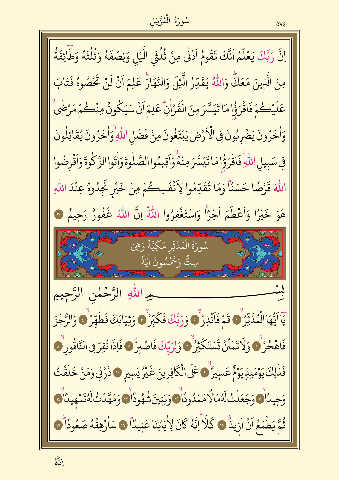 سُورَةُ الْمُزَّمِّلِ
٥٧٤
اِنَّ رَبَّكَ يَعْلَمُ اَنَّكَ تَقُومُ اَدْنٰى مِنْ ثُلُثَيِ الَّيْلِ وَنِصْفَهُ وَثُلُثَهُ وَطَٓائِفَةٌ
مِنَ الَّذِينَ مَعَكَ وَاللّٰهُ يُقَدِّرُ الَّيْلَ وَالنَّهَارَ عَلِمَ اَنْ لَنْ تُحْصُوهُ فَتَابَ
عَلَيْكُمْ فَاقْرَؤُا مَا تَيَسَّرَ مِنَ الْقُرْاٰنِ عَلِمَ اَنْ سَيَكُونُ مِنْكُمْ مَرْضٰى
وَاٰخَرُونَ يَضْرِبُونَ فِي الْاَرْضِ يَبْتَغُونَ مِنْ فَضْلِ اللّٰهِ وَاٰخَرُونَ يُقَاتِلُونَ
فِي سَبِيلِ اللّٰهِ فَاقْرَؤُا مَا تَيَسَّرَ مِنْهُ وَاَقِيمُوا الصَّلٰوةَ وَاٰتُوا الزَّكٰوةَ وَاَقْرِضُوا
اللّٰهَ قَرْضًا حَسَنًا وَمَا تُقَدِّمُوا لِاَنْفُسِكُمْ مِنْ خَيْرٍ تَجِدُوهُ عِنْدَ اللّٰهِ
هُوَ خَيْرًا وَاَعْظَمَ اَجْرًا وَاسْتَغْفِرُوا اللّٰهَ اِنَّ اللّٰهَ غَفُورٌ رَحِيمٌ ٢٠
سُورَةُ الْمُدَّثِّرِ مَكِّيَّةٌ وَهِيَ
سِتٌّ وَخَمْسُونَ اٰيَةً
بِسْمِ اللّٰهِ الرَّحْمٰنِ الرَّحِيمِ
يَٓا اَيُّهَا الْمُدَّثِّرُ ١ قُمْ فَاَنْذِرْ ٢ وَرَبَّكَ فَكَبِّرْ ٣ وَثِيَابَكَ فَطَهِّرْ ٤ وَالرُّجْزَ
فَاهْجُرْ ٥ وَلَا تَمْنُنْ تَسْتَكْثِرُ ٦ وَلِرَبِّكَ فَاصْبِرْ ٧ فَاِذَا نُقِرَ فِي النَّاقُورِ ٨
فَذٰلِكَ يَوْمَئِذٍ يَوْمٌ عَسِيرٌ ٩ عَلَى الْكَافِرِينَ غَيْرُ يَسِيرٍ ١٠ ذَرْنِي وَمَنْ خَلَقْتُ
وَحِيدًا ١١ وَجَعَلْتُ لَهُ مَالًا مَمْدُودًا ١٢ وَبَنِينَ شُهُودًا ١٣ وَمَهَّدْتُ لَهُ تَمْهِيدًا ١٤
ثُمَّ يَطْمَعُ اَنْ اَزِيدَ ١٥ كَلَّا اِنَّهُ كَانَ لِاٰيَاتِنَا عَنِيدًا ١٦ سَاُرْهِقُهُ صَعُودًا ١٧
اِنَّهُ